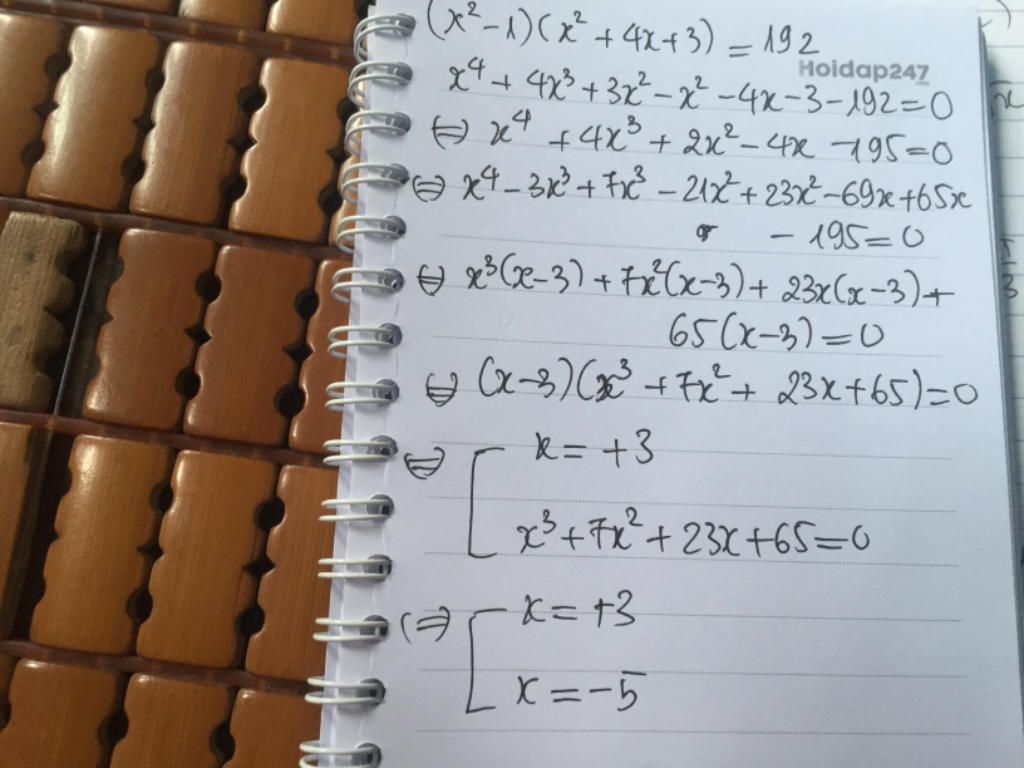 (x² - 1)(x² + 4x + 3) = 192
Hoidap247
x⁴ + 4x³ + 3x² - x² - 4x - 3 - 192 = 0
⇔ x⁴ + 4x³ + 2x² - 4x - 195 = 0
⇔ x⁴ - 3x³ + 7x³ - 21x² + 23x² - 69x + 65x
- 195 = 0
⇔ x³(x - 3) + 7x²(x - 3) + 23x(x - 3) +
65(x - 3) = 0
⇔ (x - 3)(x³ + 7x² + 23x + 65) = 0
⇔ [ x = +3
x³ + 7x² + 23x + 65 = 0
⇔ [ x = +3
x = -5